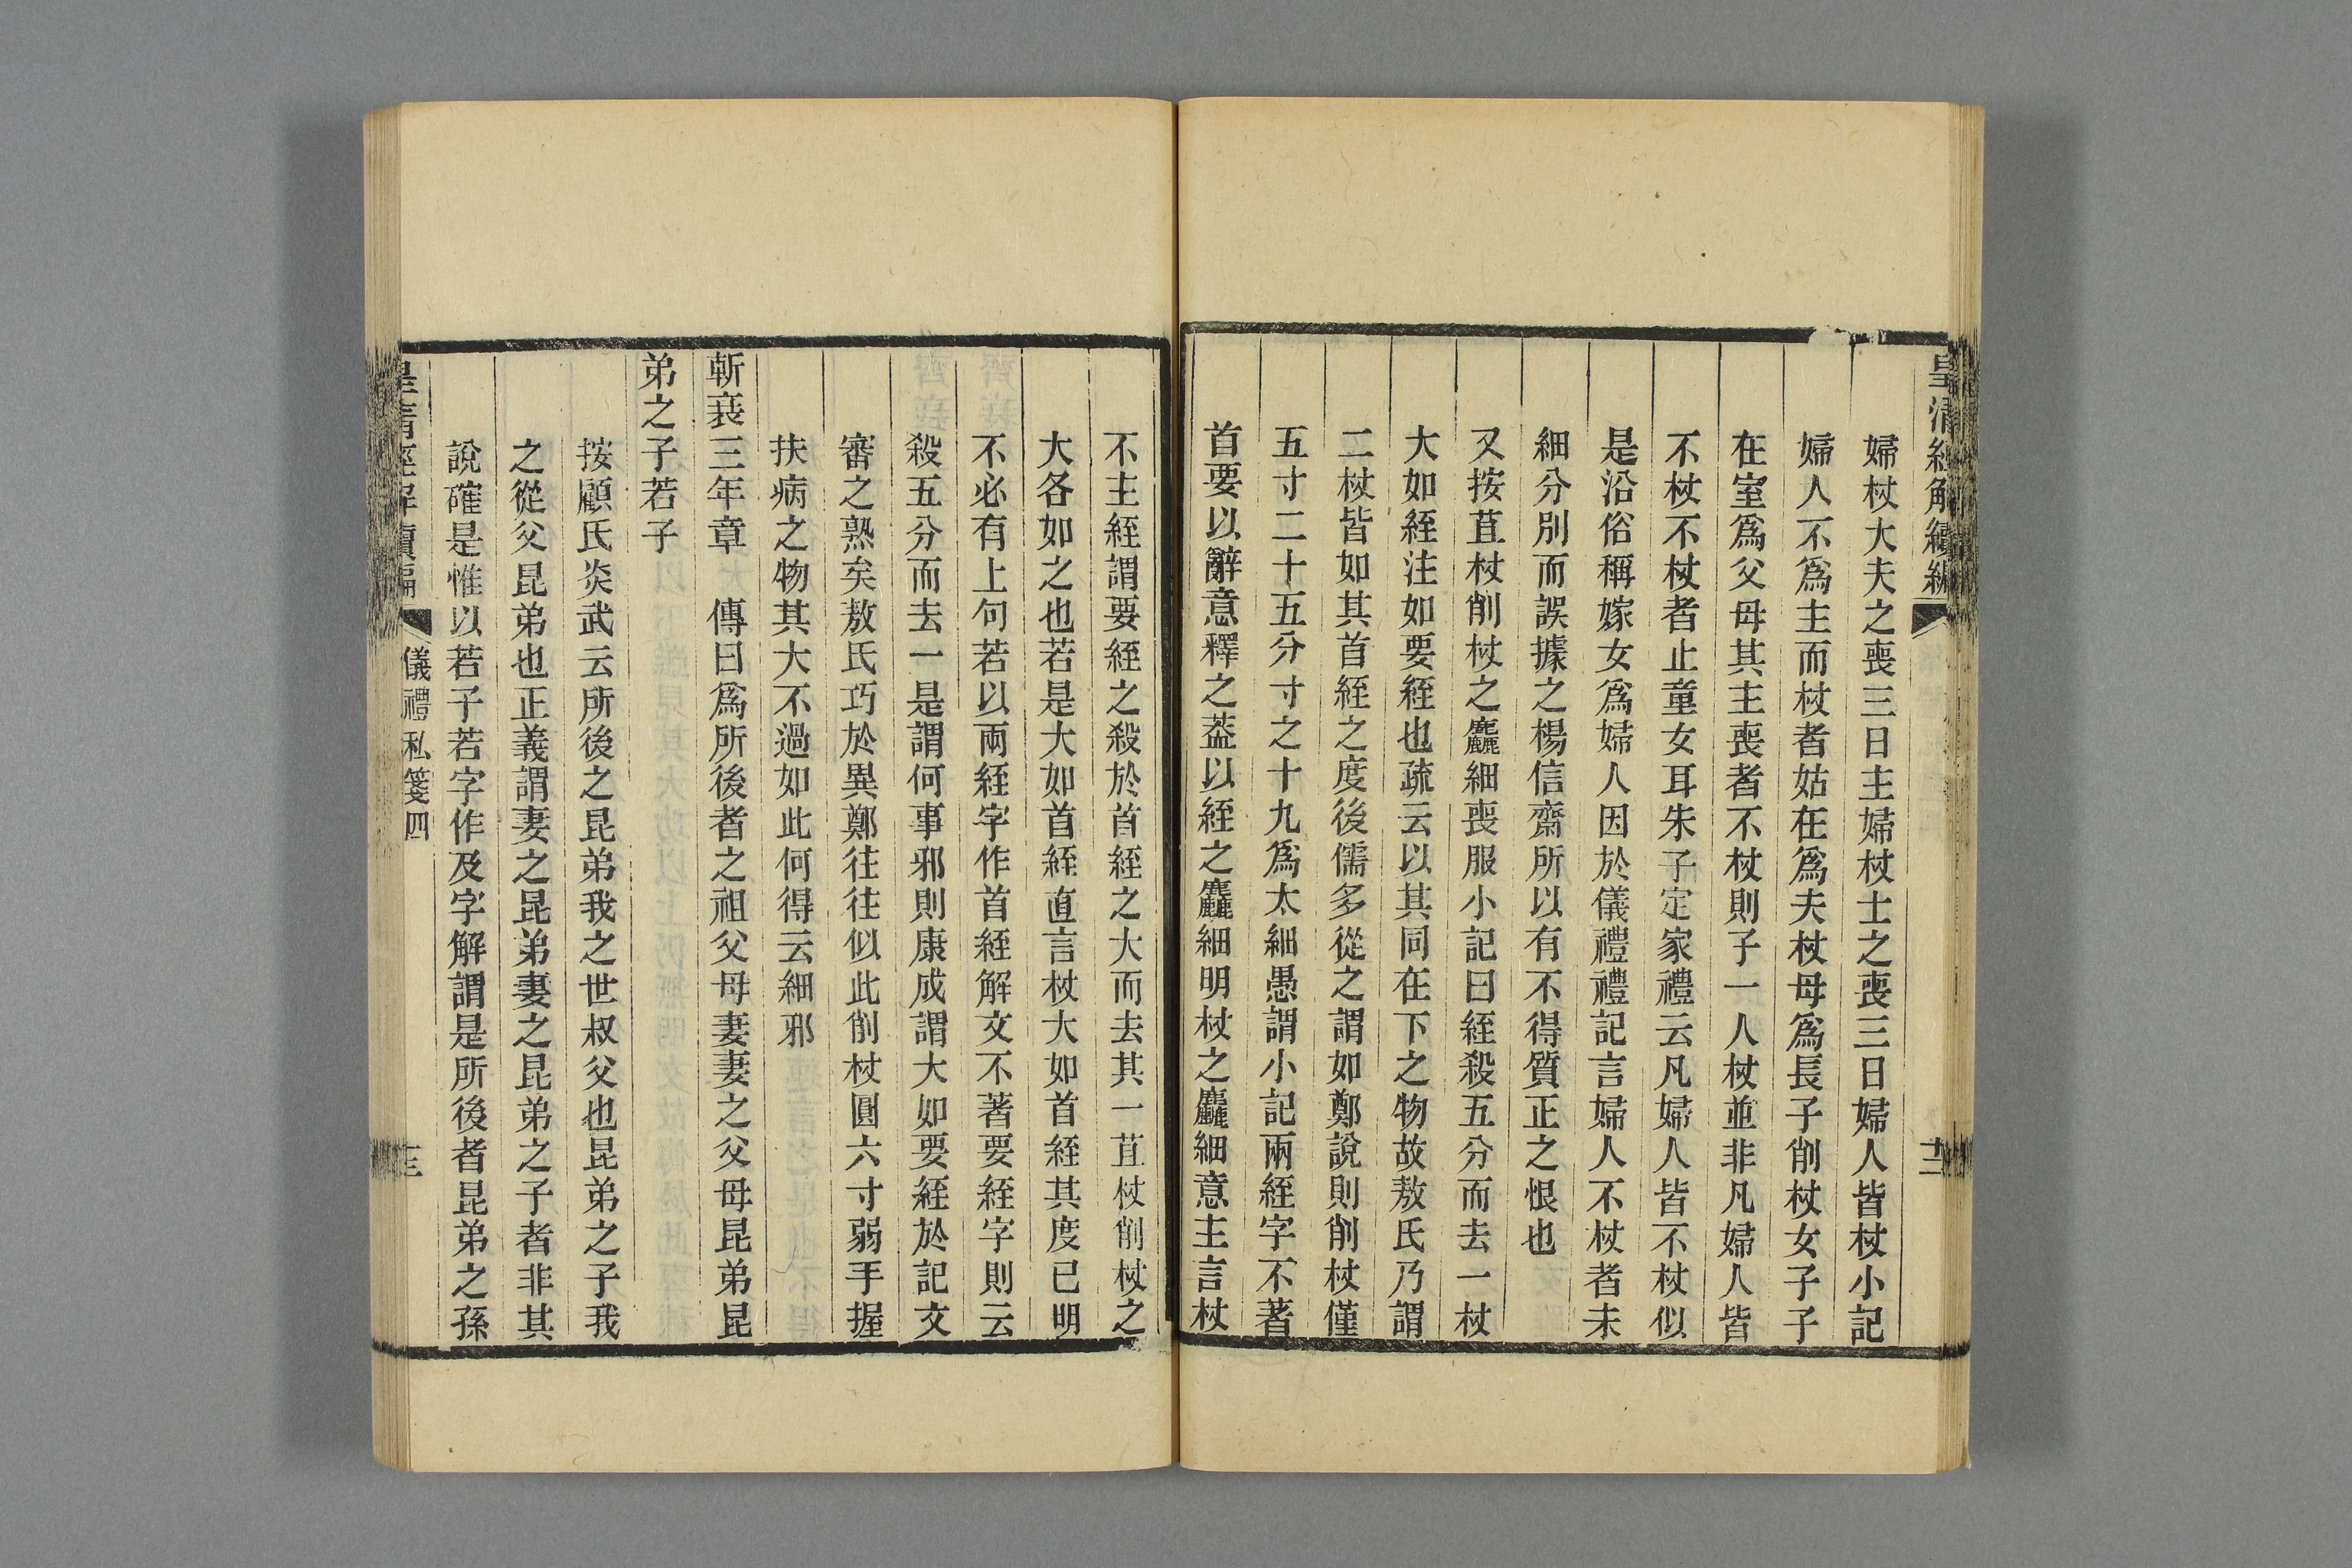 皇清經解續編
十二
婦杖大夫之喪三日主婦杖士之喪三日婦人皆杖小記
婦人不爲主而杖者姑在爲夫杖母爲長子削杖女子子
在室爲父母其主喪者不杖則子一人杖並非凡婦人皆
不杖不杖者止童女耳朱子定家禮云凡婦人皆不杖似
是沿俗稱嫁女爲婦人因於儀禮禮記言婦人不杖者未
細分別而誤據之楊信齋所以有不得質正之恨也
又按苴杖削杖之麤細喪服小記曰絰殺五分而去一杖
大如絰注如要絰也疏云以其同在下之物故敖氏乃謂
二杖皆如其首絰之度後儒多從之謂如鄭說則削杖僅
五寸二十五分寸之十九爲太細愚謂小記兩絰字不著
首要以辭意釋之葢以絰之麤細明杖之麤細意主言杖
不主絰謂要絰之殺於首絰之大而去其一苴杖削杖之
大各如之也若是大如首絰直言杖大如首絰其度已明
不必有上句若以兩絰字作首絰解文不著要絰字則云
殺五分而去一是謂何事邪則康成謂大如要絰於記文
審之熟矣敖氏巧於異鄭往往似此削杖圓六寸弱手握
扶病之物其大不過如此何得云細邪
斬衰三年章　傳曰爲所後者之祖父母妻妻之父母昆弟昆
弟之子若子
按顧氏炎武云所後之昆弟我之世叔父也昆弟之子我
之從父昆弟也正義謂妻之昆弟妻之昆弟之子者非其
說確是惟以若子若字作及字解謂是所後者昆弟之孫
皇清經解續編
儀禮私箋四
十三